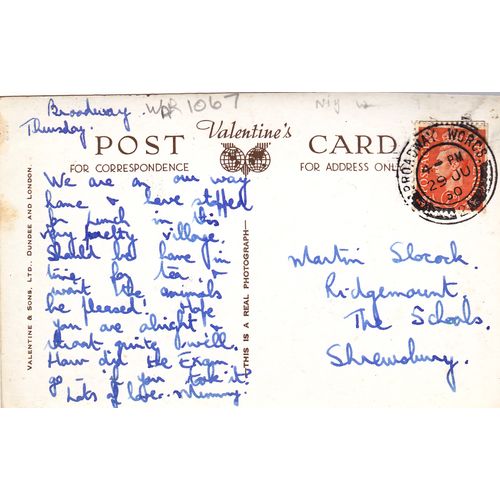 Broadway WAR 1067
Thursday.
POST Valentine's CARD
FOR CORRESPONDENCE FOR ADDRESS ONLY
We are on our way
home & have stopped
for lunch in this
very pretty village.
Should be home in
time for tea &
wont the animals
be pleased! Hope
you are alright &
quite well.
How did the Exam
go – if you took it?
Lots of love. Mummy.
VALENTINE & SONS, LTD., DUNDEE AND LONDON.
THIS IS A REAL PHOTOGRAPH
BROADWAY WORCS
4 – PM
29 JU
50
Martin Slocock.
Ridgemount.
The Schools.
Shrewsbury.